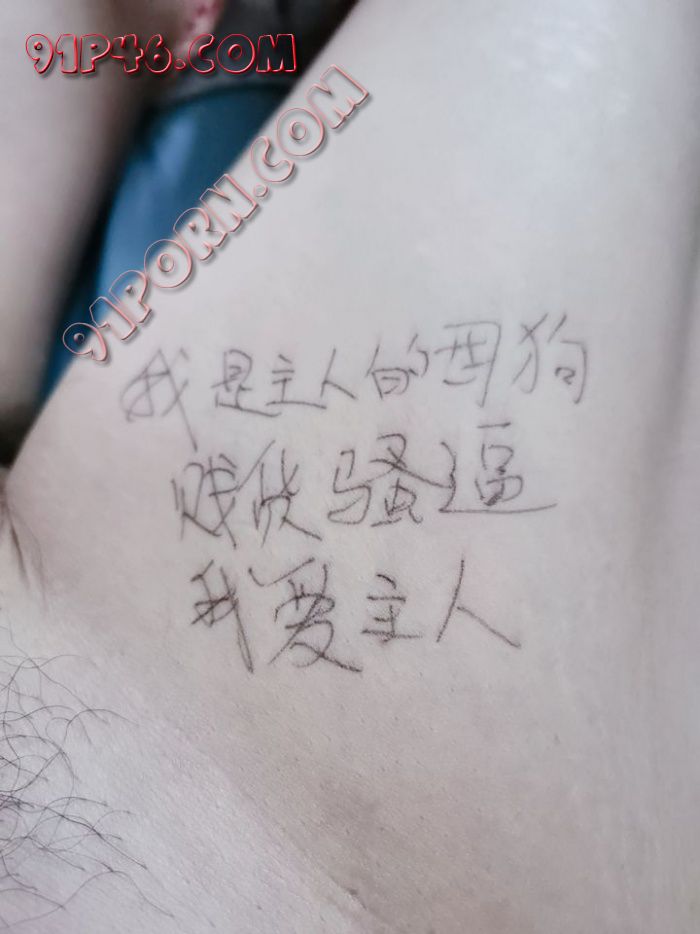 91P46.COM
91PORN.COM
我是主人的母狗
贱货骚逼
我爱主人